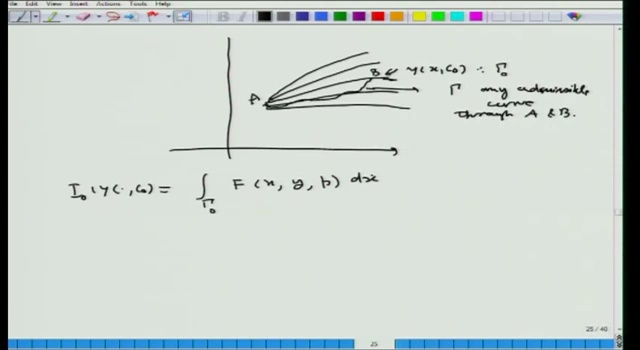 Edit View Insert Actions Tools Help
A
B y(x, c₀) : Γ₀
Γ any admissible
curve
through A & B.
I₀(y(·, c₀) = ∫_Γ₀ F(x, y, p) dx
25 / 40
25